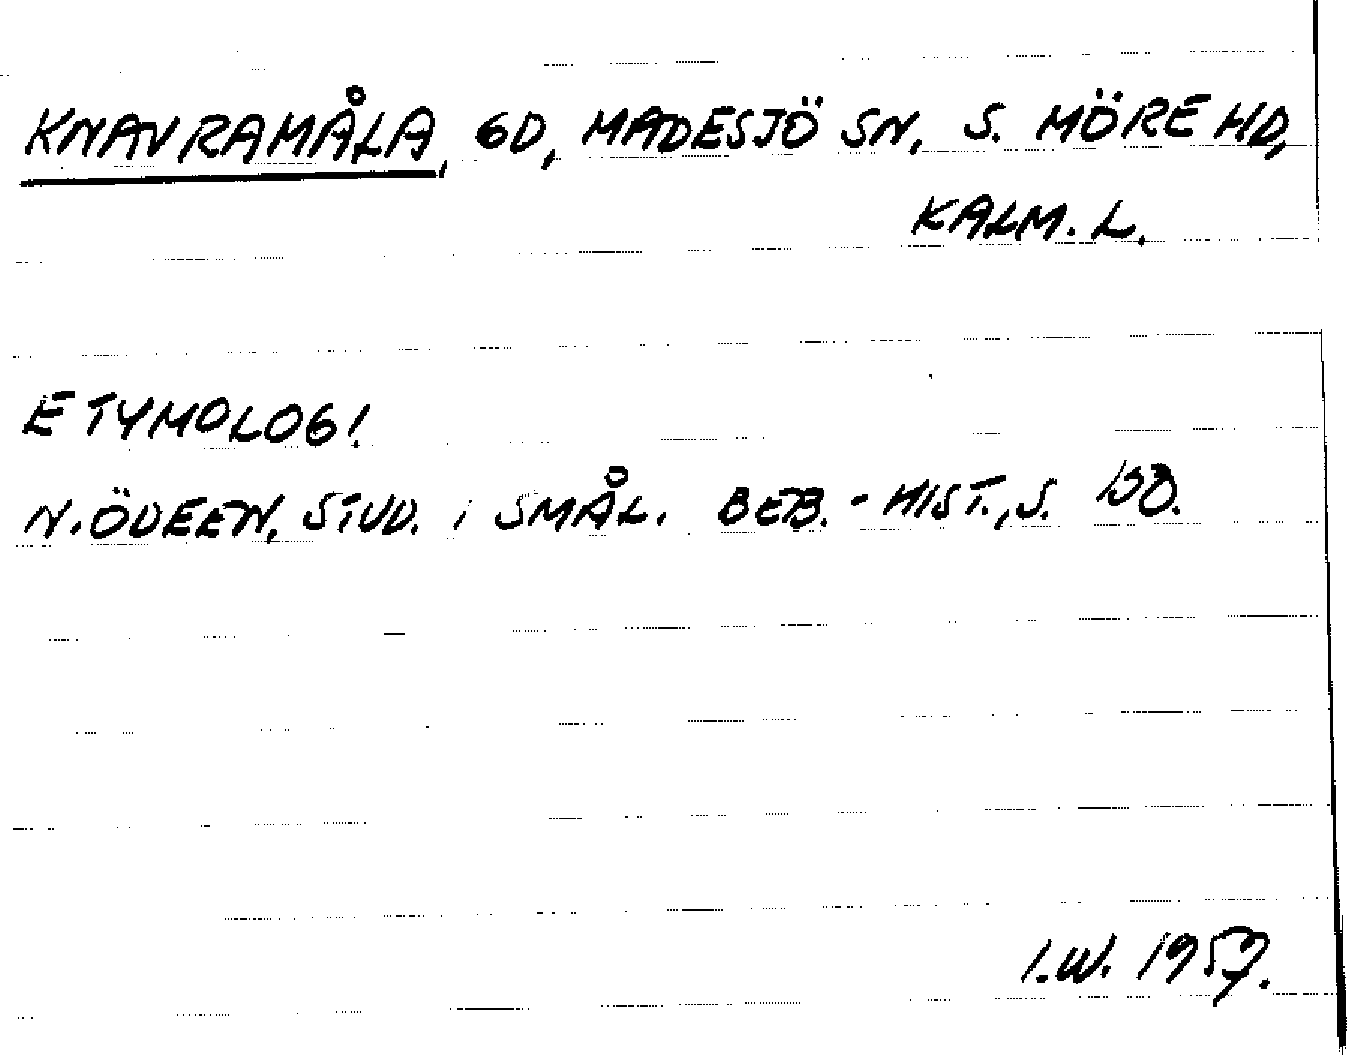 KNAVRAMÅLA, GD, MADESJÖ SN, S. MÖRE HD,
KALM. L.
ETYMOLOGI.
N. ÖDEEN, STUD. i SMÅL. BEB.-HIST., S.
I.W. 1957.